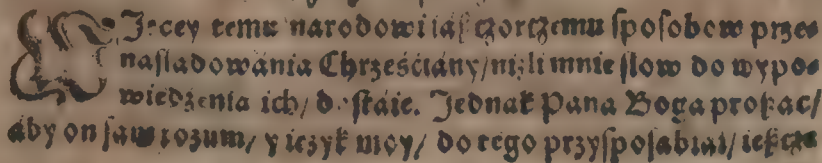 WIęcey temu narodowi iáſzczorczemu ſpoſobow prze⸗
náſládowánia Chrześćiány/niżli mnie ſlow do wypo⸗
wiedzenia ich/ doſtáie. Jednák Páná Bogá proſząc/
áby on ſam rozum/ y ięzyk moy/ do tego przyſpoſabiał/